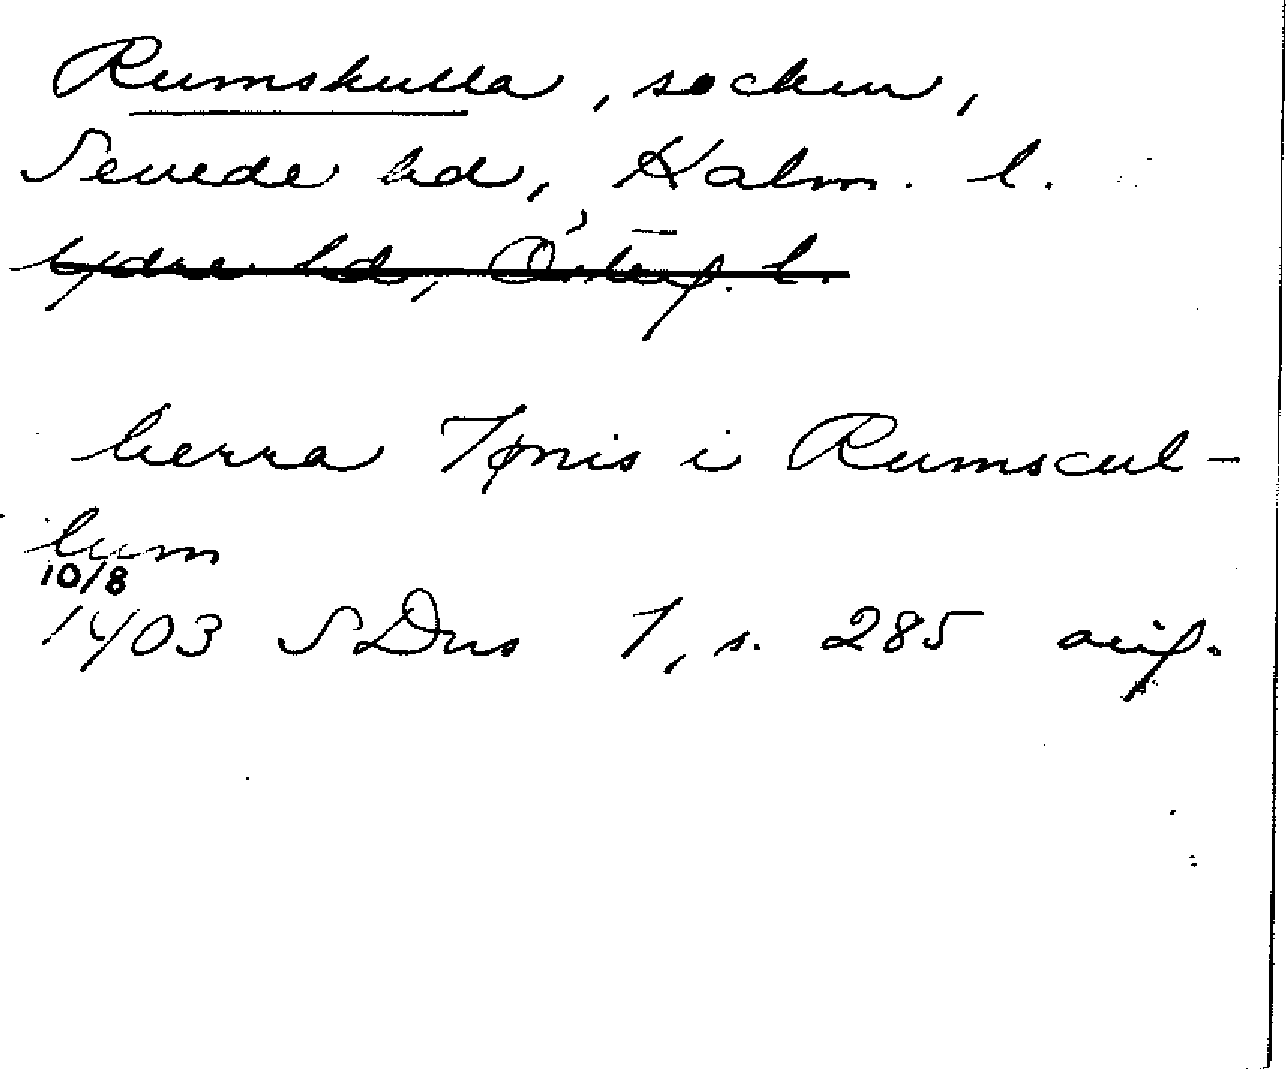 Rumskulla, socken,
Sevede hd, Kalm. l.
Ydre hd, Österg. l.
herra Tønis i Rumscul-
lum
10/8
1403 SDns 1, s. 285 avs.